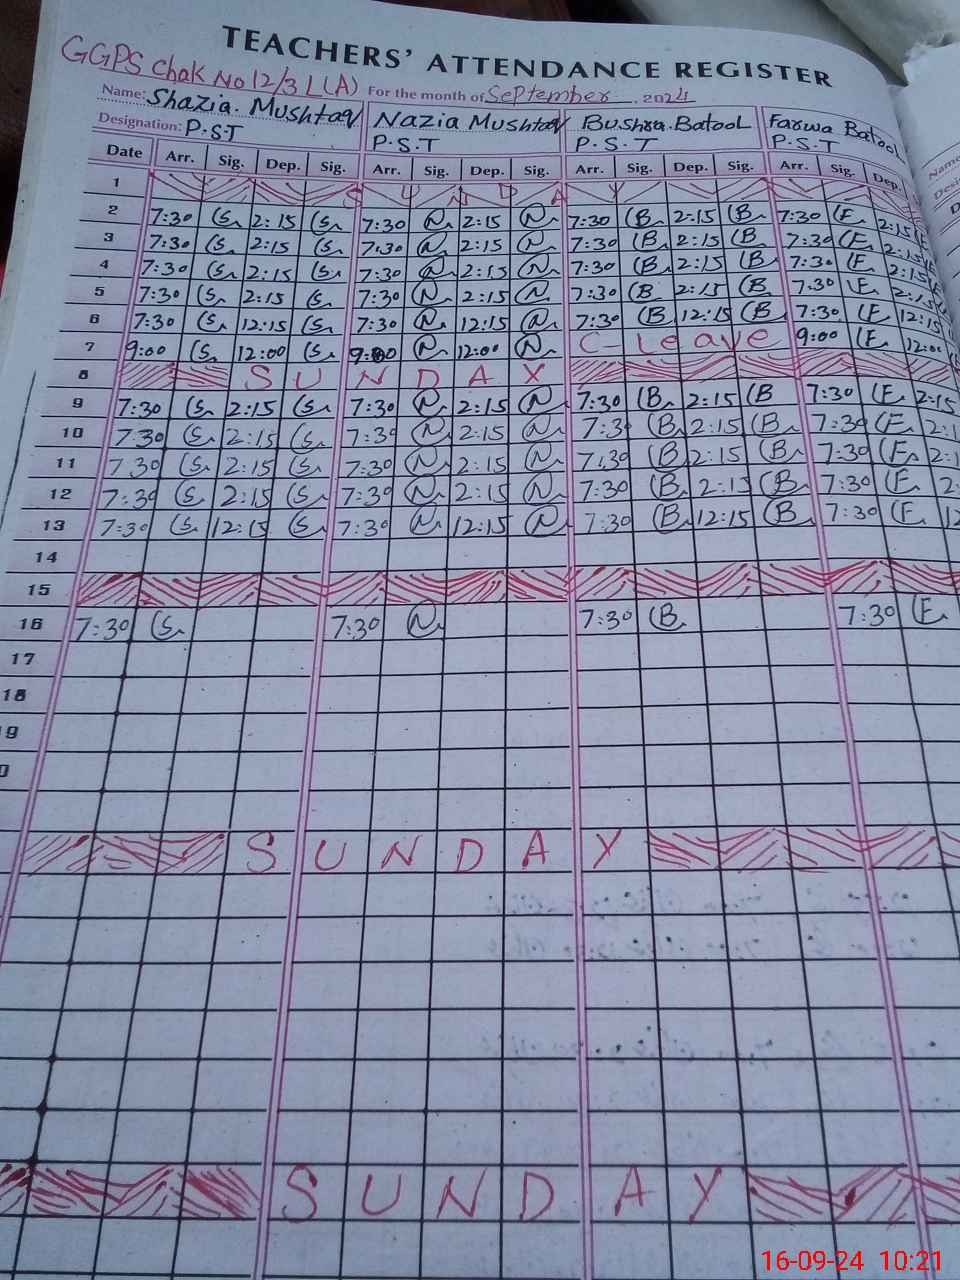 TEACHERS' ATTENDANCE REGISTER
GGPS chak No 12/3L(A) For the month of September 2024
Name: Shazia Mushtaq Nazia Mushtaq Bushra Batool Farwa Batool
Designation: P.S.T P.S.T P.S.T P.S.T
Date Arr. Sig. Dep. Sig. Arr. Sig. Dep. Sig. Arr. Sig. Dep. Sig. Arr. Sig. Dep.
1 SUNDAY
2 7:30 S 2:15 S 7:30 N 2:15 N 7:30 B 2:15 B 7:30 F 2:15 F
3 7:30 S 2:15 S 7:30 N 2:15 N 7:30 B 2:15 B 7:30 F 2:15 F
4 7:30 S 2:15 S 7:30 N 2:15 N 7:30 B 2:15 B 7:30 F 2:15
5 7:30 S 2:15 S 7:30 N 2:15 N 7:30 B 2:15 B 7:30 F 2:15
6 7:30 S 12:15 S 7:30 N 12:15 N 7:30 B 12:15 B 7:30 F 12:15
7 9:00 S 12:00 S 9:00 N 12:00 N C-Leave 9:00 F 12:00
8 SUNDAY
9 7:30 S 2:15 S 7:30 N 2:15 N 7:30 B 2:15 B 7:30 F 2:15
10 7:30 S 2:15 S 7:30 N 2:15 N 7:30 B 2:15 B 7:30 F 2:1
11 7:30 S 2:15 S 7:30 N 2:15 N 7:30 B 2:15 B 7:30 F 2:1
12 7:30 S 2:15 S 7:30 N 2:15 N 7:30 B 2:15 B 7:30 F 2:
13 7:30 S 12:15 S 7:30 N 12:15 N 7:30 B 12:15 B 7:30 F 12
14
15
16 7:30 S 7:30 N 7:30 B 7:30 F
17
18
9
0
SUNDAY
SUNDAY
16-09-24 10:21